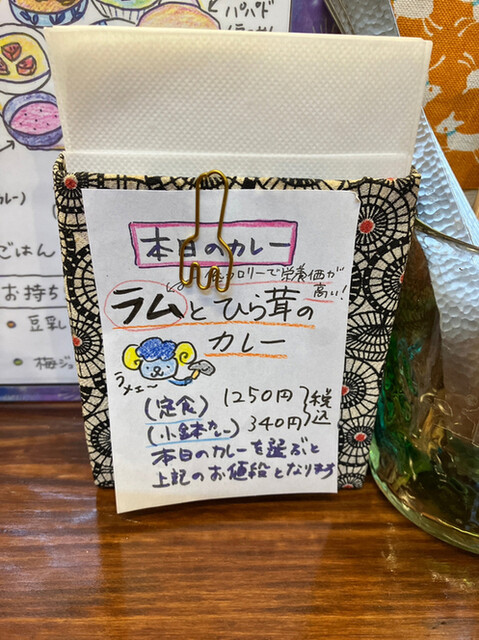 パパド
カレー)
ごはん
お持ち
豆乳
梅ジュ
本日のカレー
カロリーで栄養価が
高い!
ラムとひら茸の
カレー
ラメェ〜
(定食) 1250円
(小鉢カレー) 340円 税込
本日のカレーを選ぶと
上記のお値段となります